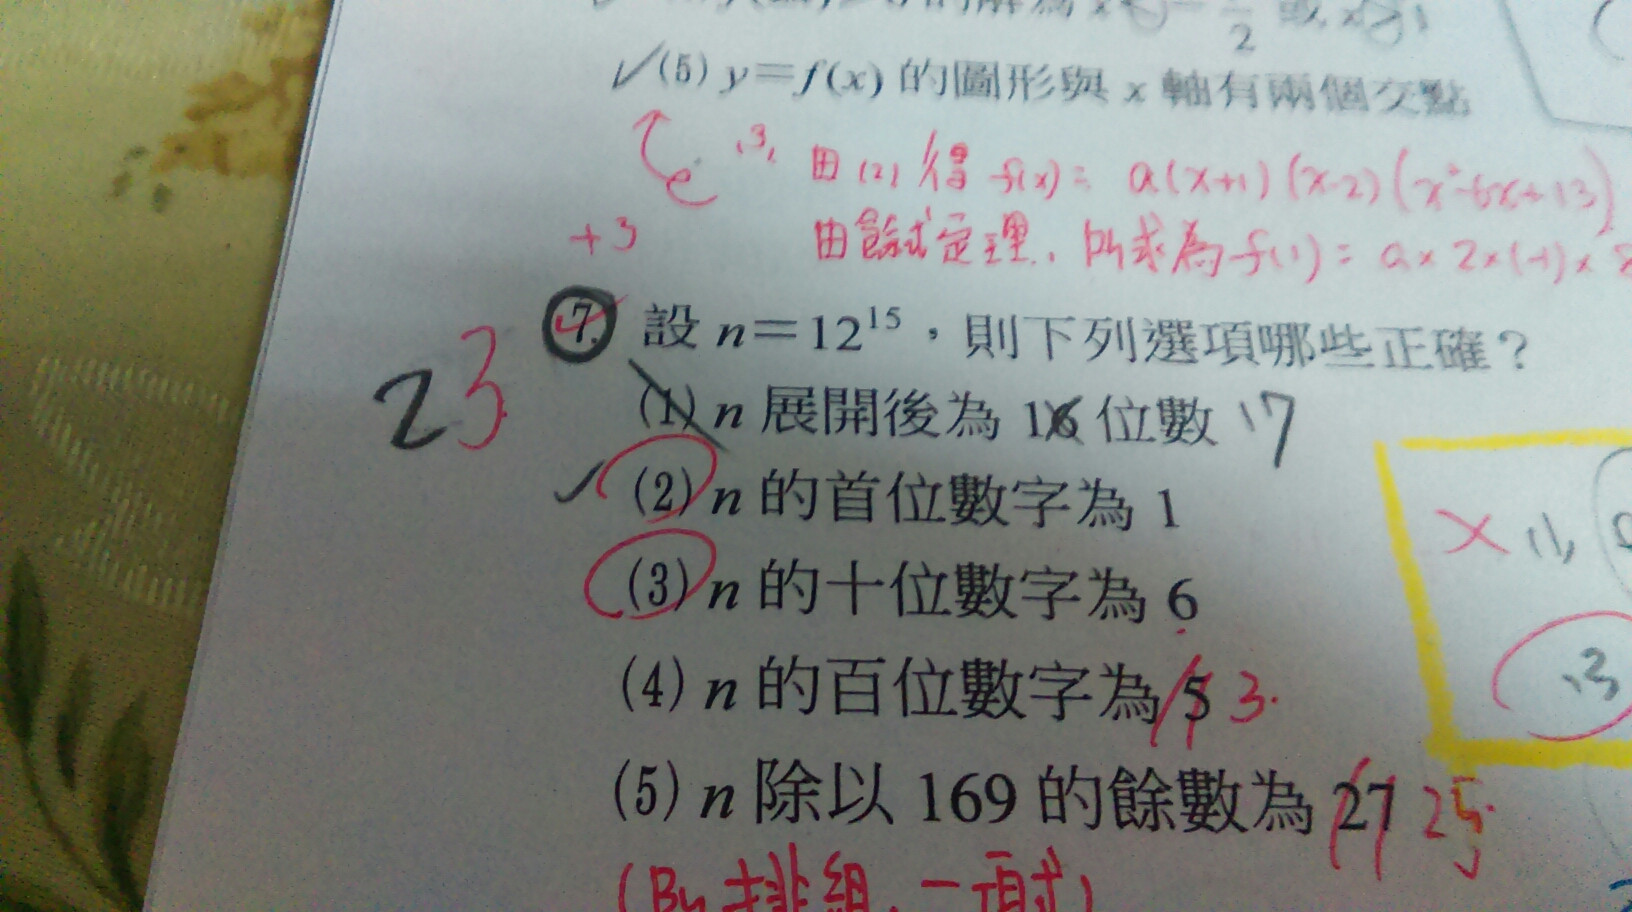 的解為 x
2 或 x
✓(5) y=f(x) 的圖形與 x 軸有兩個交點
(3) 由(2)得 f(x)= a(x+1)(x-2)(x²-6x+13)
+3 由餘式定理, 所求為 f(1)= a×2×(-1)×8
23 7. 設 n=12¹⁵,則下列選項哪些正確?
(1) n 展開後為 16 位數 17
✓(2) n 的首位數字為 1
(3) n 的十位數字為 6
(4) n 的百位數字為 5 3.
(5) n 除以 169 的餘數為 27 25.
× (1)
(3